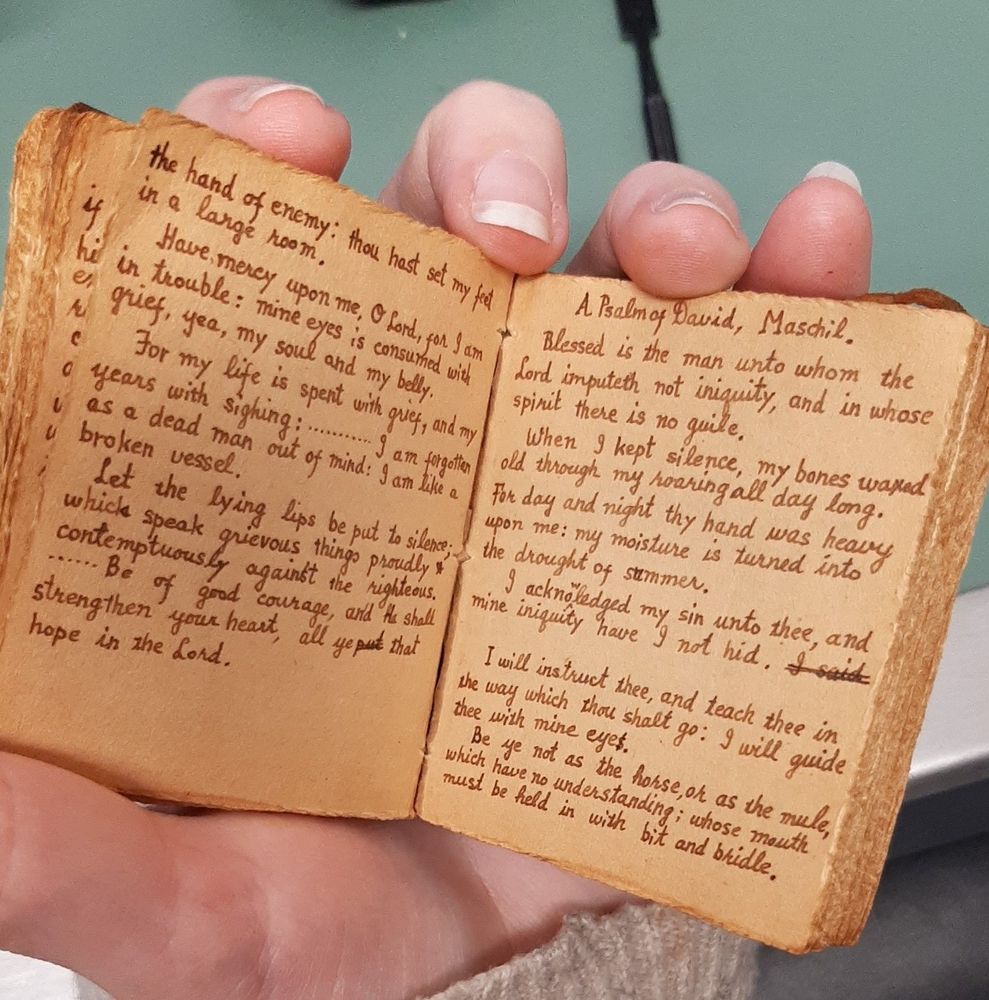 the hand of enemy: thou hast set my feet
in a large room.
Have mercy upon me, O Lord, for I am
in trouble: mine eyes is consumed with
grief, yea, my soul and my belly.
For my life is spent with grief, and my
years with sighing: ........... I am forgotten
as a dead man out of mind: I am like a
broken vessel.
Let the lying lips be put to silence;
which speak grievous things proudly &
contemptuously against the righteous.
...... Be of good courage, and He shall
strengthen your heart, all ye put that
hope in the Lord.
if
hi
A Psalm of David, Maschil.
Blessed is the man unto whom the
Lord imputeth not iniquity, and in whose
spirit there is no guile.
When I kept silence, my bones waxed
old through my roaring all day long.
For day and night thy hand was heavy
upon me: my moisture is turned into
the drought of summer.
I acknowledged my sin unto thee, and
mine iniquity have I not hid. I said
I will instruct thee, and teach thee in
the way which thou shalt go: I will guide
thee with mine eyes.
Be ye not as the horse, or as the mule,
which have no understanding; whose mouth
must be held in with bit and bridle.